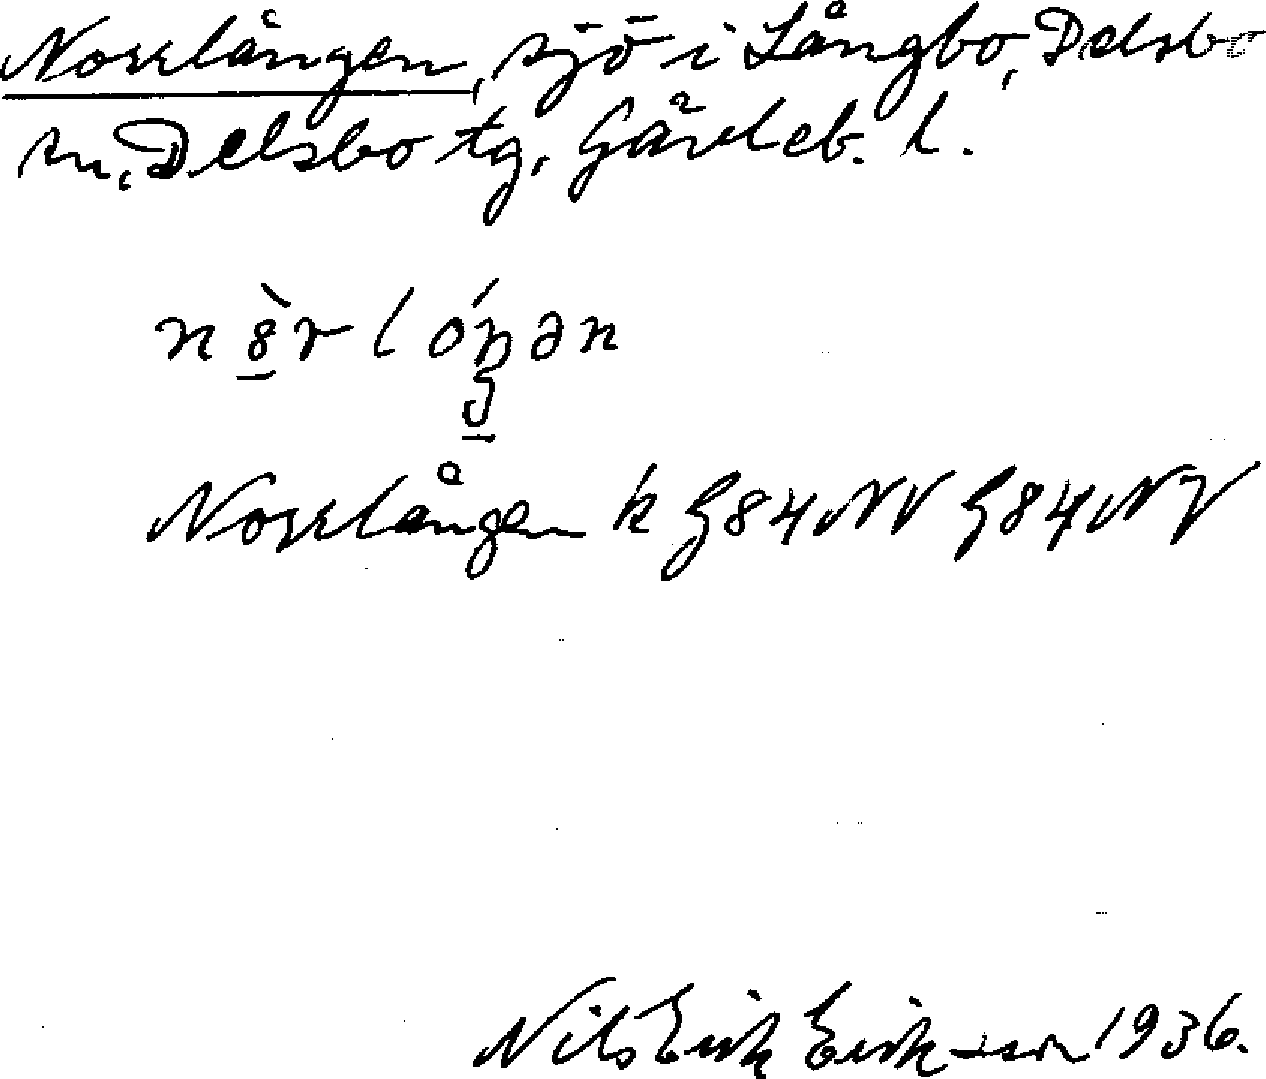 Norrlången, sjö i Långbo, Delsbo
sn, Delsbo tg, Gävleb. l.
n ò r l óŋ ə n
Norrlången k G84NV G84NV
Nils Erik Eriksson 1936.